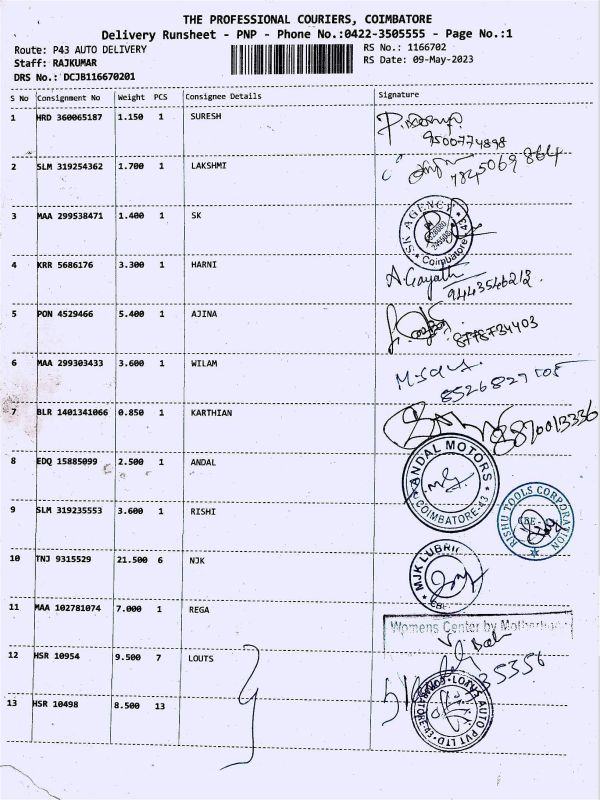 THE PROFESSIONAL COURIERS, COIMBATORE
Delivery Runsheet - PNP - Phone No.:0422-3505555 - Page No.:1
Route: P43 AUTO DELIVERY
RS No.: 1166702
Staff: RAJKUMAR
RS Date: 09-May-2023
DRS No.: DCJB116670201
S No Consignment No Weight PCS Consignee Details Signature
1 HRD 360065187 1.150 1 SURESH
9500774898
2 SLM 319254362 1.700 1 LAKSHMI
7845069864
3 MAA 299538471 1.400 1 SK
SN AGENCY
Coimbatore
4 KRR 5686176 3.300 1 HARNI
A. Gayath
9443546212
5 PON 4529466 5.400 1 AJINA
8778734403
6 MAA 299303433 3.600 1 WILAM
8526827105
7 BLR 1401341066 0.850 1 KARTHIAN
8870013336
8 EDQ 15885099 2.500 1 ANDAL
ANDAL MOTORS
COIMBATORE-43
9 SLM 319235553 3.600 1 RISHI
RISHU TOOLS CORPORATION
CBE
10 TNJ 9315529 21.500 6 NJK
MJK LUBRIC
CBE
11 MAA 102781074 7.000 1 REGA
Womens Center by Motherhood
12 HSR 10954 9.500 7 LOUTS
35356
13 HSR 10498 8.500 13
AUTO PVT LTD